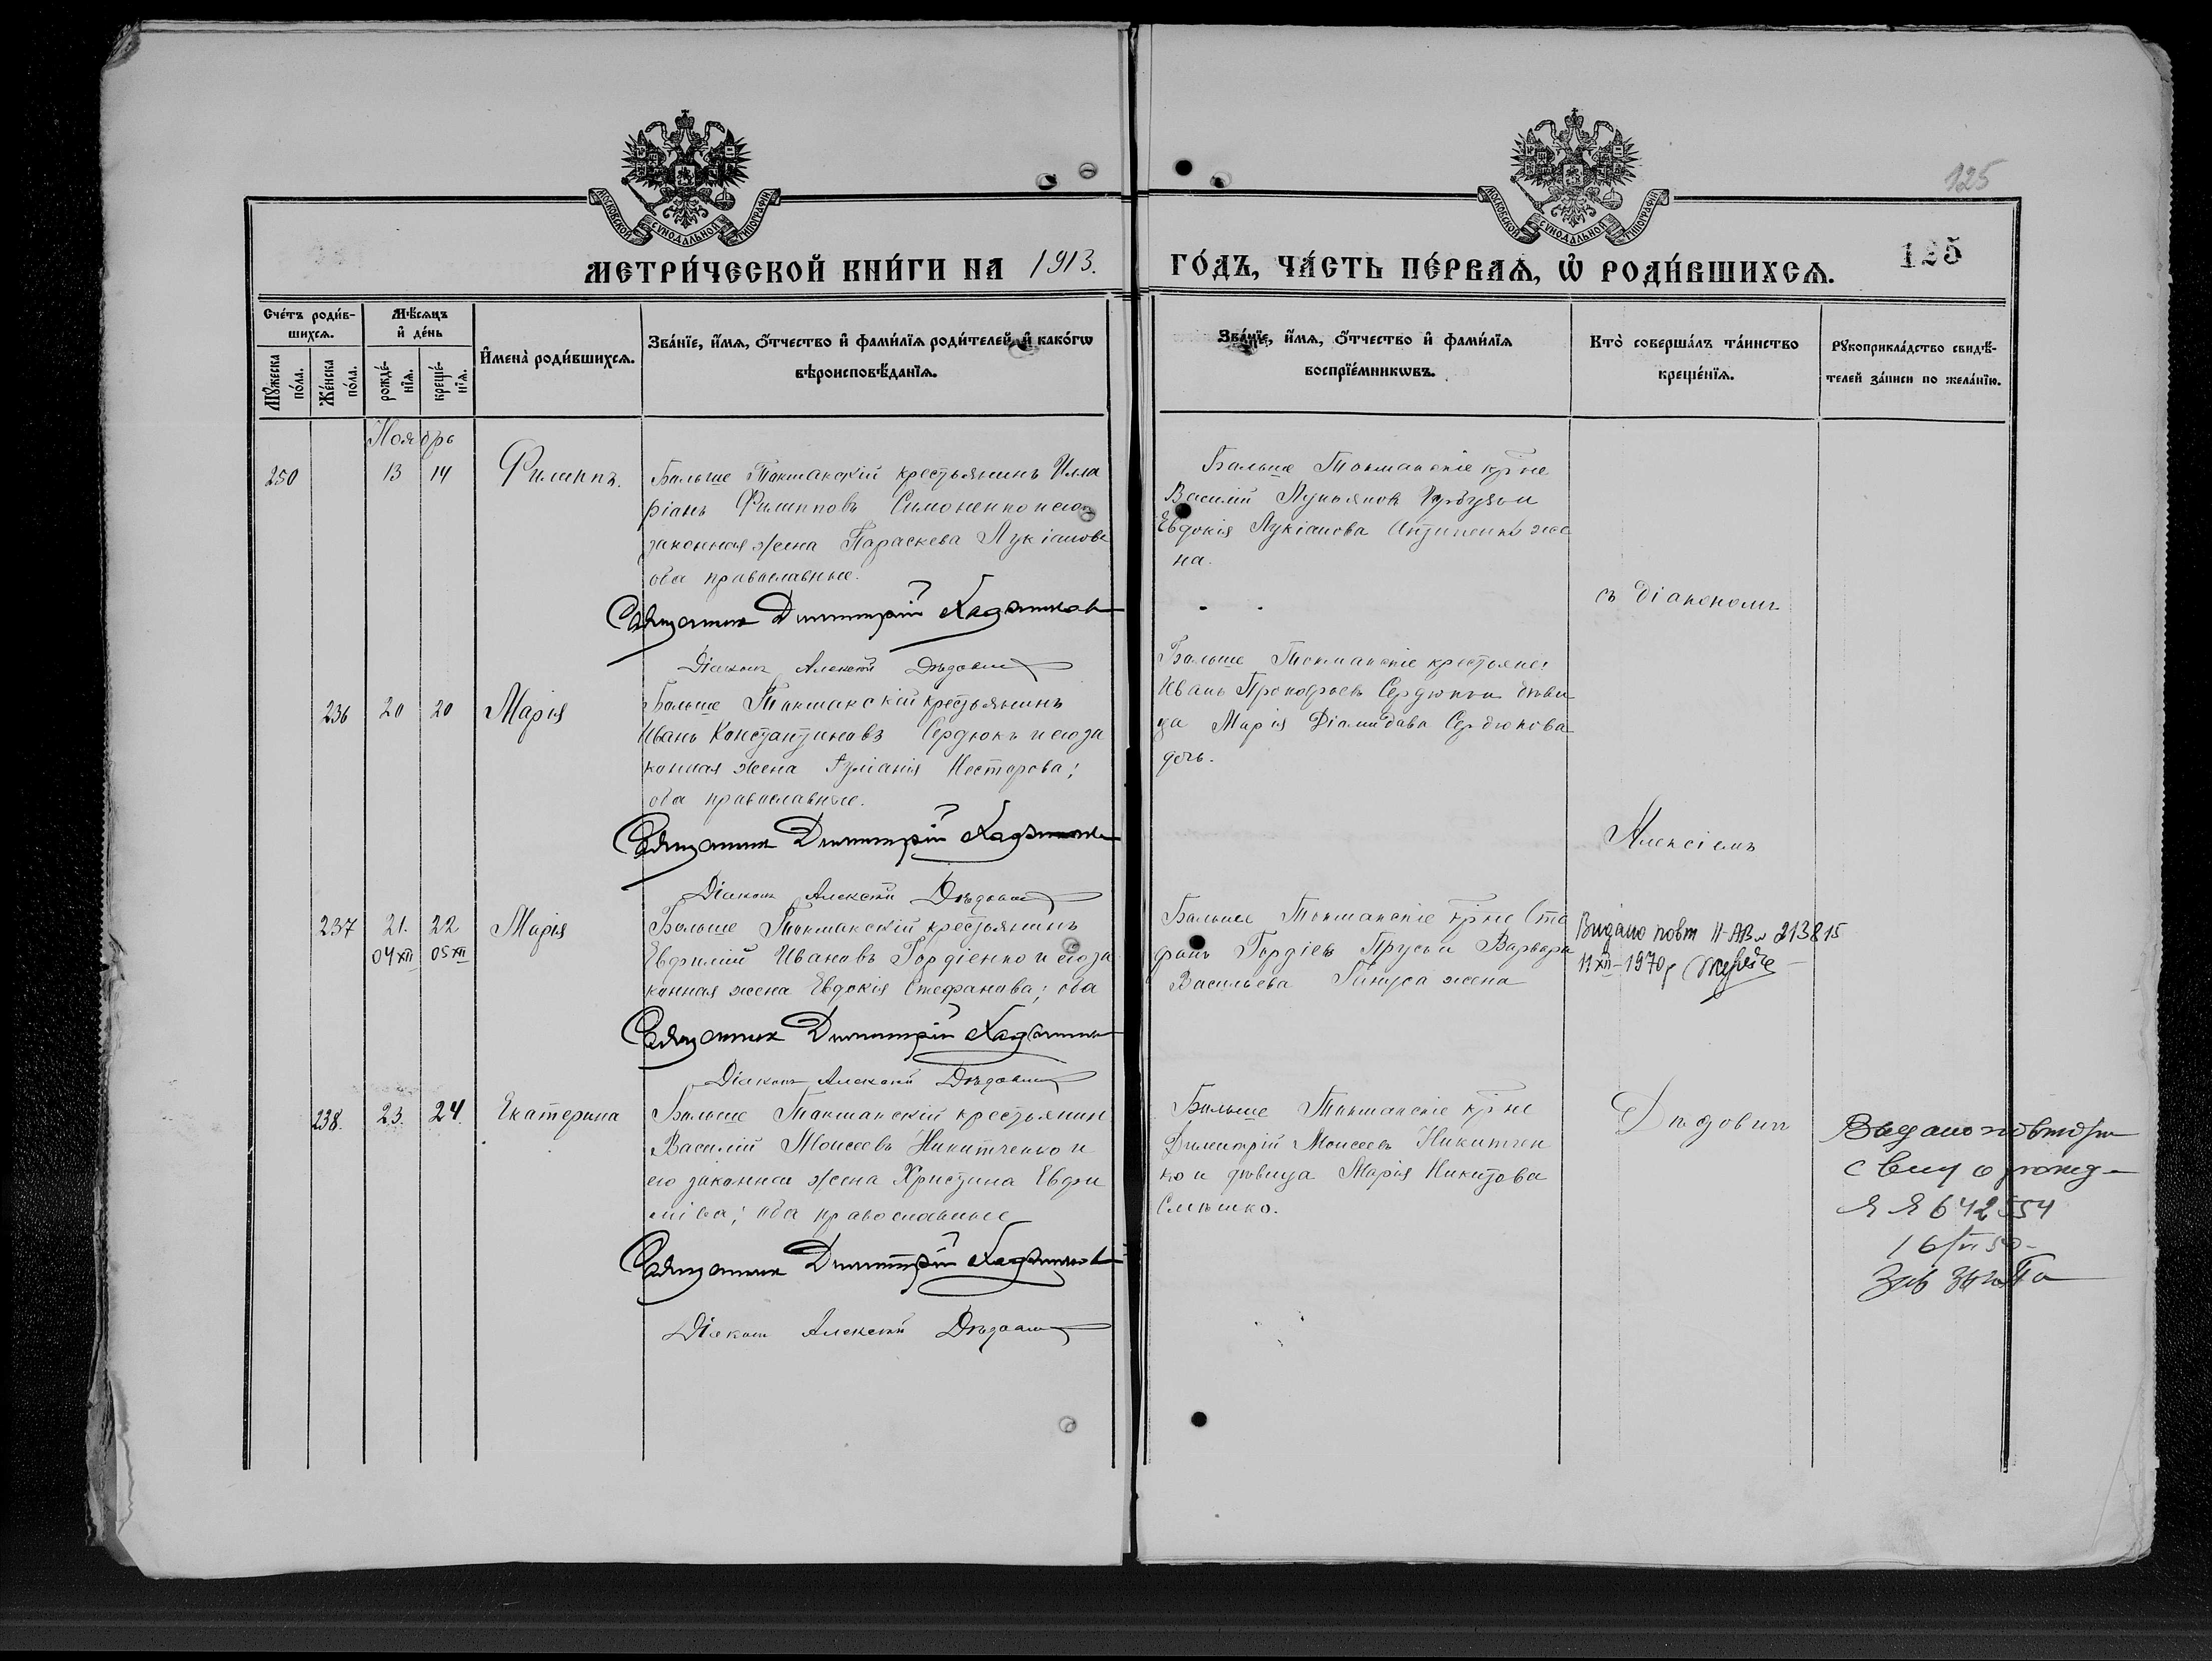 125
МОСКОВСКОЙ СУНОДАЛЬНОЙ ТИПОГРАФІИ
МОСКОВСКОЙ СУНОДАЛЬНОЙ ТИПОГРАФІИ
МЕТРИ́ЧЕСКОЙ КНИ́ГИ НА 1913. ГО́ДЪ, ЧА́СТЬ ПЕ́РВАѦ, Ѡ҆ РОДИ́ВШИХСѦ.
125
Сче́тъ роди́в-
шихсѧ.
Мѣ́сѧцъ
и҆ де́нь
Мꙋ́жеска
по́ла.
Же́нска
по́ла.
рожде́-
нїѧ.
креще́-
нїѧ.
И҆мена̀ роди́вшихсѧ.
Зва́нїе, и҆́мѧ, ѻ҆́тчество и҆ фами́лїѧ роди́телей, и҆ како́гѡ
вѣроисповѣ́данїѧ.
Зва́нїе, и҆́мѧ, ѻ҆́тчество и҆ фами́лїѧ
воспрїе́мникѡвъ.
Кто̀ соверша́лъ та́инство
креще́нїѧ.
Рꙋкоприкла́дство свидѣ́-
телей за́писи по жела́нїю.
Ноябрь
250 13 14 Филиппъ.
Больше Токмакскій крестьянинъ Илла
ріанъ Филипповъ Симоненко и его
законная жена Параскева Лукіанова
оба православные.
Священник Димитрій
Діаконъ Алексѣй Дѣдович
Больше Токмакскіе кр‑не
Василій Лукьяновъ
Евдокія Лукіанова же
на.
съ діакономъ
236 20 20 Марія
Больше Токмакскій крестьянинъ
Иванъ Константиновъ Сердюкъ и его за
конная жена Нестерова;
оба православные.
Священник Димитрій
Діаконъ Алексѣй Дѣдович
Больше Токмакскіе крестьяне:
Иванъ Прокофьевъ Сердюк и дѣви
ца Марія Діамидова Сердюкова
дочь.
Алексіемъ
237 21. 22 Марія
04 XII 05 XII
Больше Токмакскій крестьянинъ
Евфимій Ивановъ Гордіенко и его за
конная жена Евдокія Стефанова; оба
Священник Димитрій
Діаконъ Алексѣй Дѣдович
Больше Токмакскіе кр‑не Сте
фанъ Гордіевъ Варвара
Васильева жена
Видано повт II-АВ № 213815
11 XII-1970р
238. 23. 24. Екатерина
Больше Токмакскій крестьянин
Василій Моисеевъ Никитченко и
его законная жена Христина Евфи
міева; оба православные
Священник Димитрій
Діаконъ Алексѣй Дѣдович
Больше Токмакскіе кр‑не
Димитрій Моисеевъ Никитчен
ко и дѣвица Марія Никитова
Слѣшко.
Дѣдовичъ
Выдано повторн
с вид о рожд
ЯЯ 642554